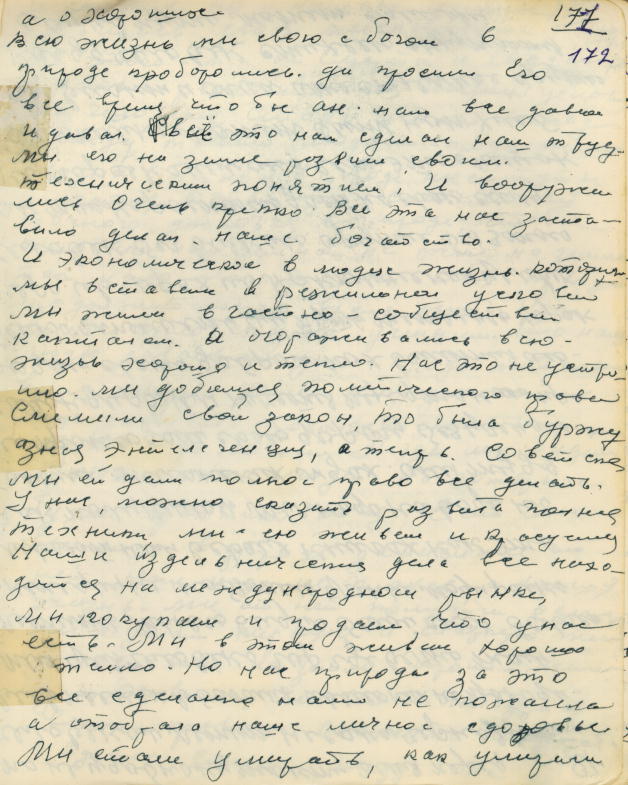 а о хорошие
171
172
Всю жизнь мы свою с Богом в
природе проборолись. да просили Его
все время, что бы он. нам все давал
и давал. Всё это нам сделал нам труд,
мы его на земле развили своим.
техническим понятием, И вооружи
лись очень крепко. Все эта нас заста-
вило делал. наше богатство.
И экономическое в людях жизнь. которую
мы вставили в режимной условии
мы жили в частно-собществен
капитале. А оторживались всю-
жизнь хорошо и тепло. Нас это не устро-
ило. мы добились политического права
Сменили свой закон, то была буржу
азная энтелегенция, а теперь. Советская
мы ей дали полное право все делать.
У нас, можно сказать развита полная
техника, мы ею живем и красуемся
Наши изделвнические дела все нахо-
дятся на международном рынке,
мы покупаем и продаем что у нас
есть. Мы в этом живем хорошо
тепло Но нас природа за это
все сделанно нами не пожалела
а отобрала наше лично здоровье
Мы стали умирать, как умирали